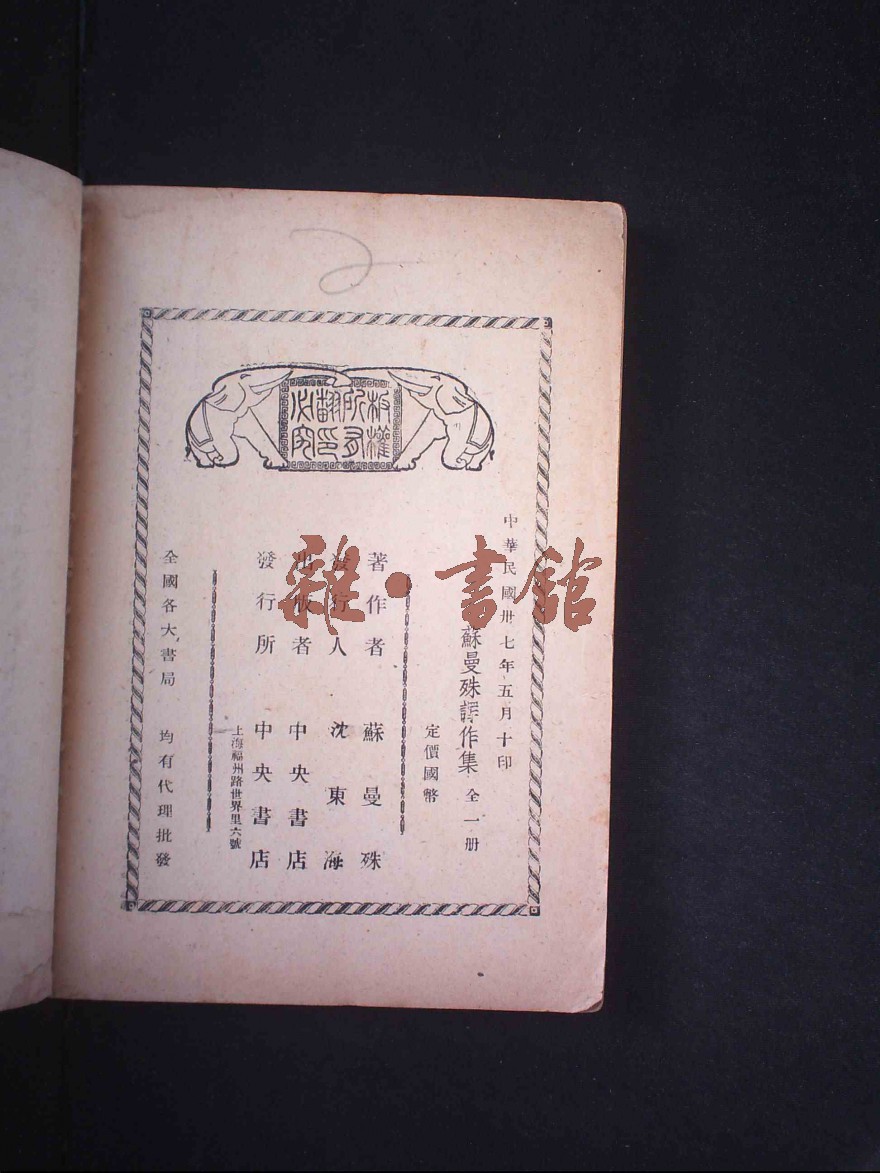 版權所有
翻印必究
中華民國卅七年五月十印
蘇曼殊譯作集 全一册
定價國幣
著作者 蘇曼殊
發行人 沈東海
出版者 中央書店
發行所 中央書店
上海福州路世界里六號
全國各大書局 均有代理批發
雜·書館